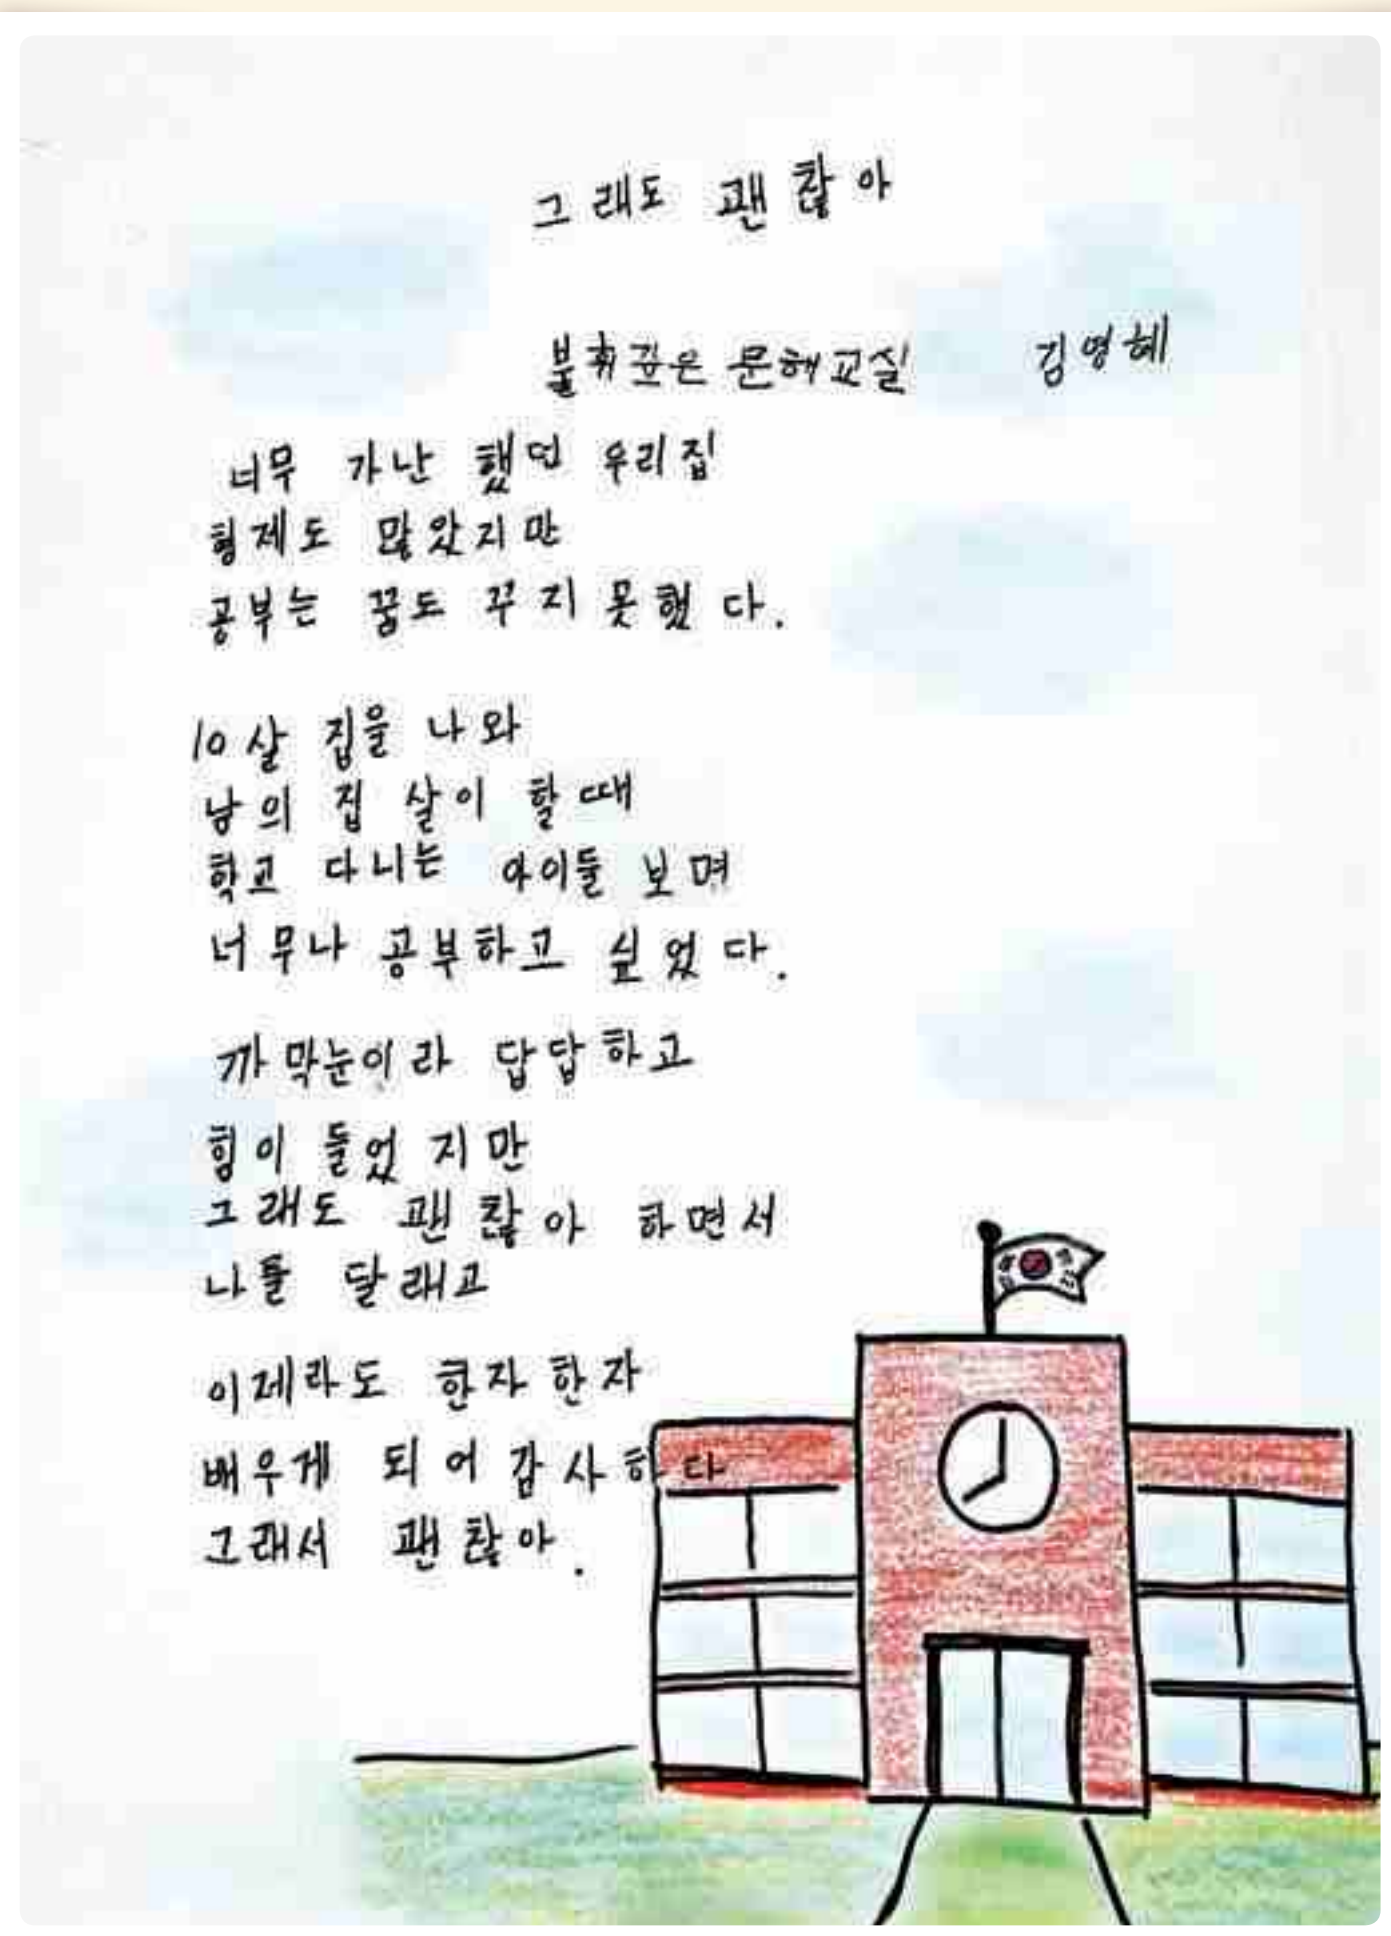 그래도 괜찮아
불휘깊은 문해교실 김영혜
너무 가난 했던 우리집
형제도 많았지만
공부는 꿈도 꾸지 못했다.
10살 집을 나와
남의 집 살이 할때
학교 다니는 아이들 보며
너무나 공부하고 싶었다.
까막눈이라 답답하고
힘이 들었지만
그래도 괜찮아 하면서
나를 달래고
이제라도 한자한자
배우게 되어 감사하다
그래서 괜찮아.